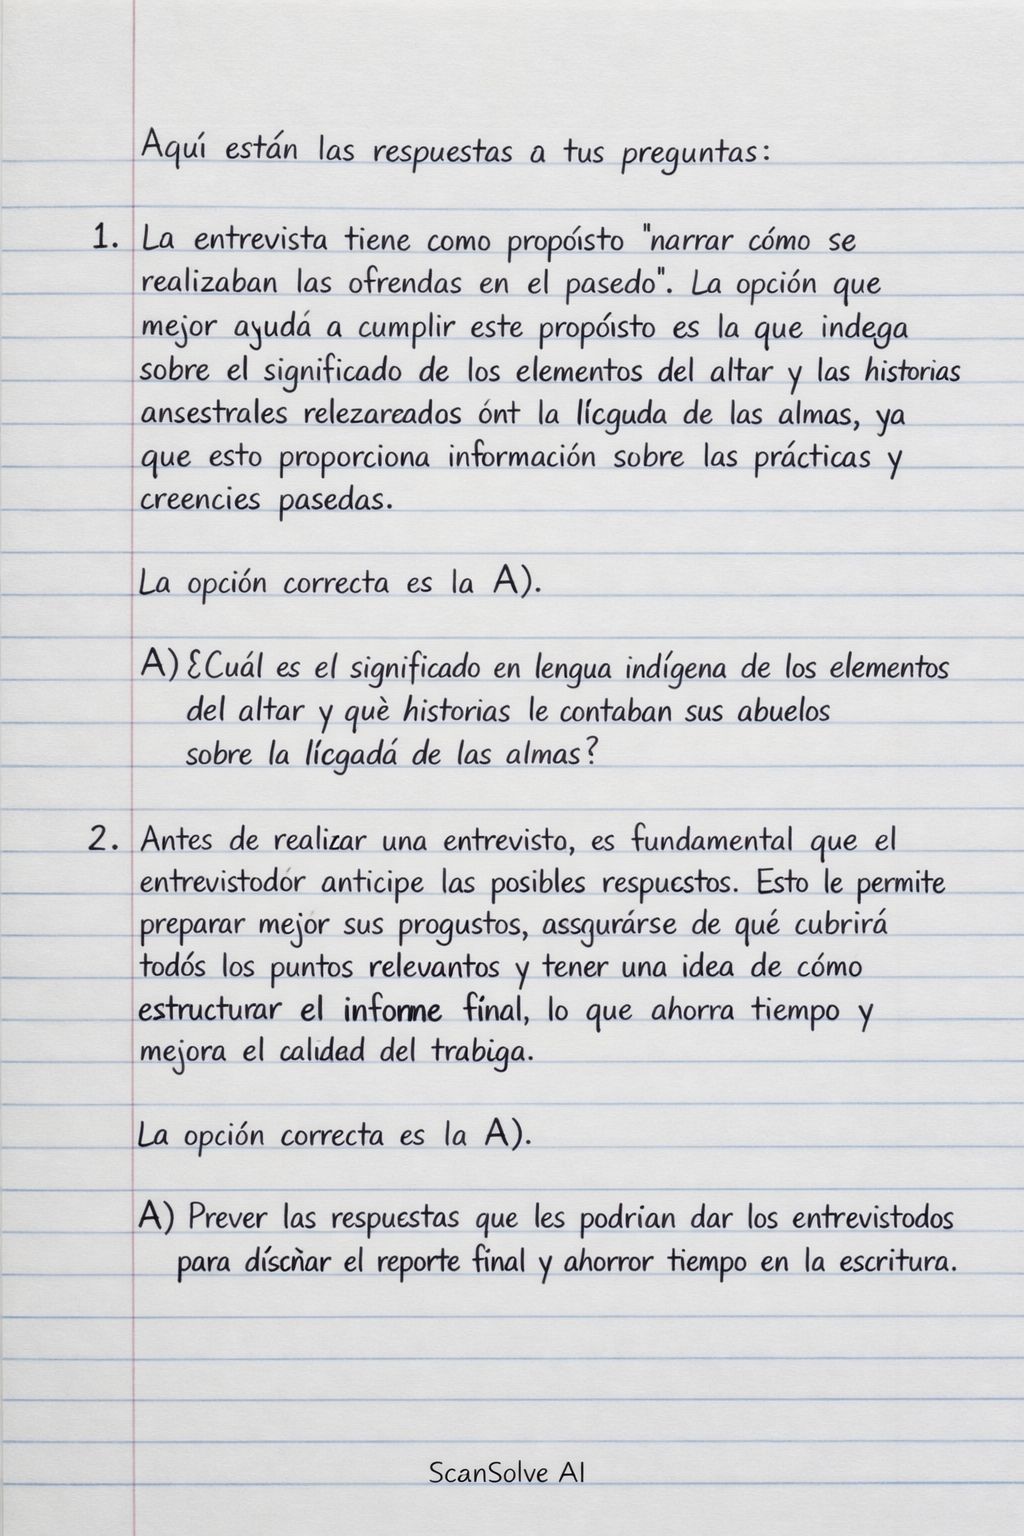 Aquí están las respuestas a tus preguntas:
1. La entrevista tiene como propóisto "narrar cómo se
realizaban las ofrendas en el pasedo". La opción que
mejor ayudá a cumplir este propóisto es la que indega
sobre el significado de los elementos del altar y las historias
ansestrales relezareados ónt la lícguda de las almas, ya
que esto proporciona información sobre las prácticas y
creencies pasedas.
La opción correcta es la A).
A) ¿Cuál es el significado en lengua indígena de los elementos
del altar y què historias le contaban sus abuelos
sobre la lícgadá de las almas?
2. Antes de realizar una entrevisto, es fundamental que el
entrevistodór anticipe las posibles respuestos. Esto le permite
preparar mejor sus progustos, assgurárse de qué cubrirá
todós los puntos relevantos y tener una idea de cómo
estructurar el informe fínal, lo que ahorra tiempo y
mejora el calidad del trabiga.
La opción correcta es la A).
A) Prever las respuestas que les podrian dar los entrevistodos
para díscñar el reporte final y ahorror tiempo en la escritura.
ScanSolve AI